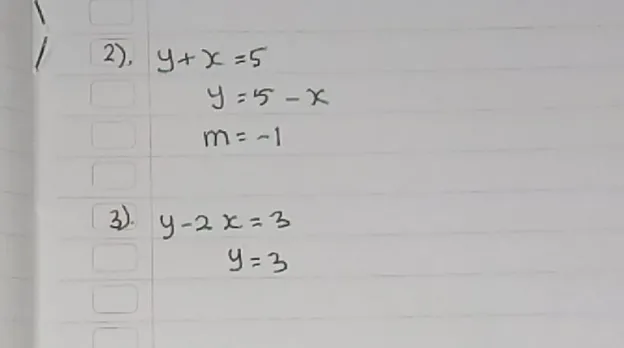 2). y+x=5
y=5-x
m=-1
3). y-2x=3
y=3